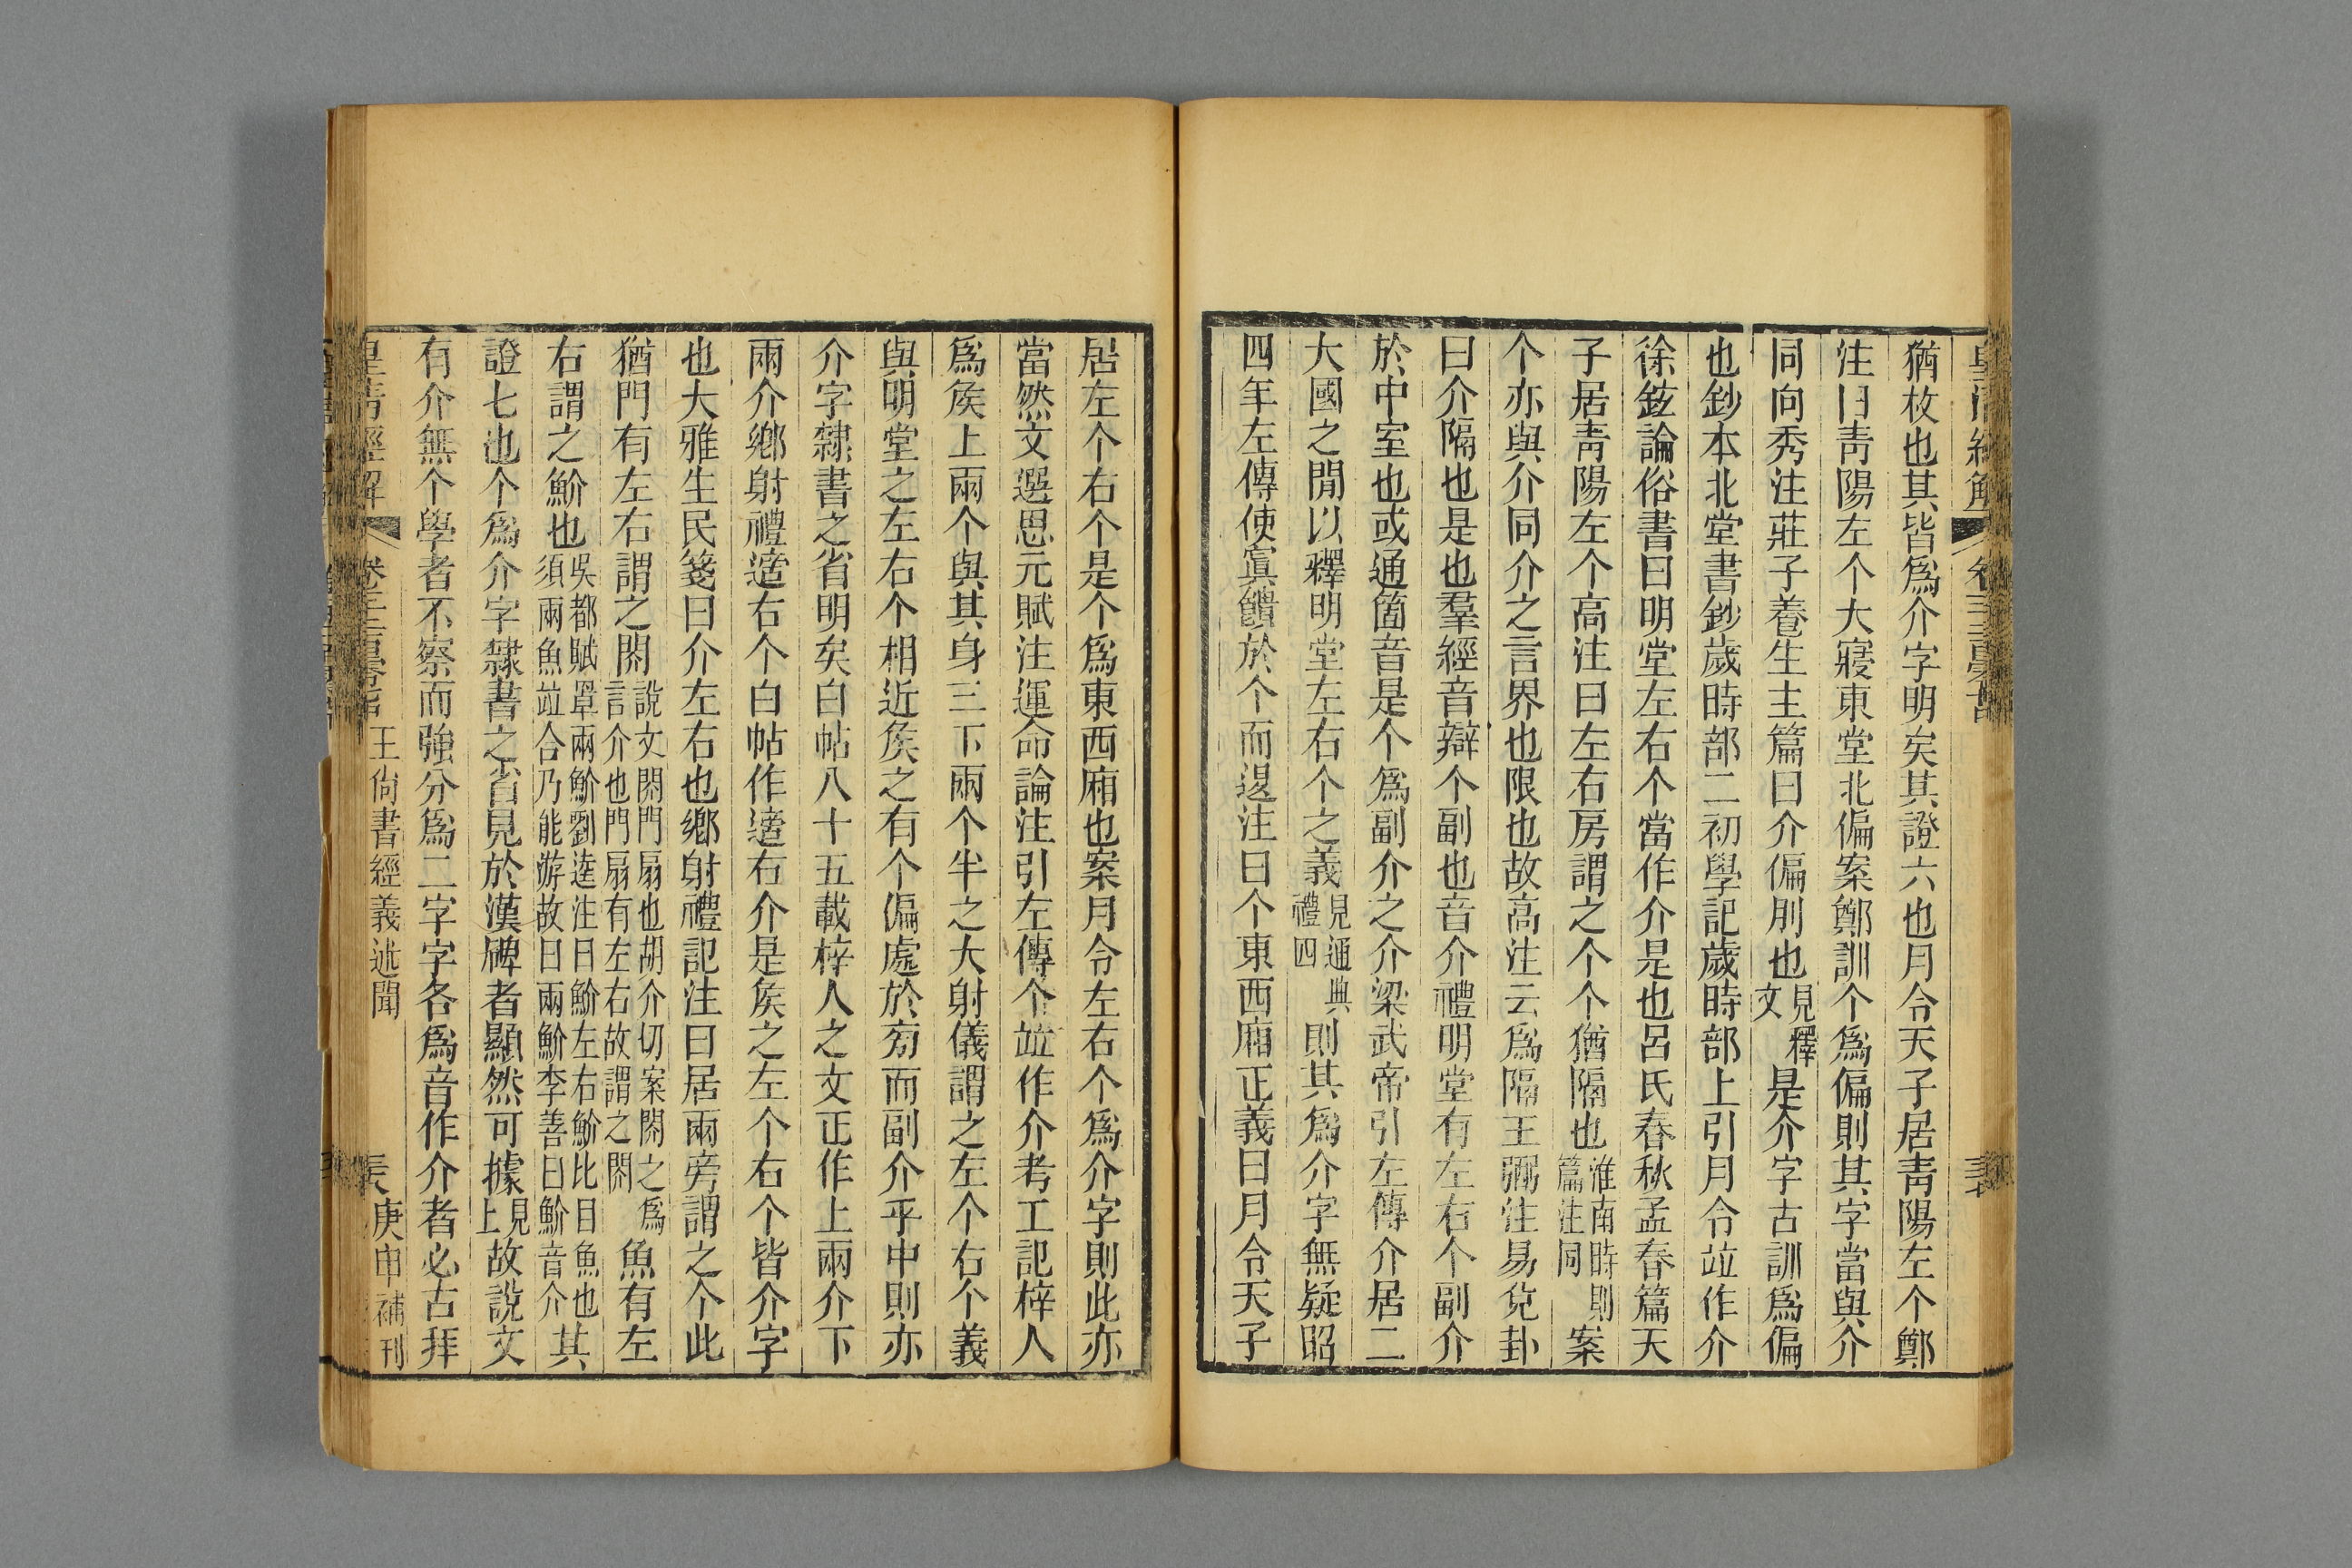 猶枚也其皆爲介字明矣其證六也月令天子居靑陽左个鄭
注曰靑陽左个大寢東堂北偏案鄭訓个爲偏則其字當與介
同向秀注莊子養生主篇曰介偏刖也見釋文是介字古訓爲偏
也鈔本北堂書鈔歲時部二初學記歲時部上引月令竝作介
徐鉉論俗書曰明堂左右个當作介是也呂氏春秋孟春篇天
子居靑陽左个高注曰左右房謂之个个猶隔也淮南時則篇注同案
个亦與介同介之言界也限也故高注云爲隔王弼注易兌卦
曰介隔也是也羣經音辯个副也音介禮明堂有左右个副介
於中室也或通箇音是个爲副介之介梁武帝引左傳介居二
大國之閒以釋明堂左右个之義見通典禮四則其爲介字無疑昭
四年左傳使寘饋於个而退注曰个東西廂正義曰月令天子
居左个右个是个爲東西廂也案月令左右个爲介字則此亦
當然文選思元賦注運命論注引左傳个竝作介考工記梓人
爲矦上兩个與其身三下兩个半之大射儀謂之左个右个義
與明堂之左右个相近矦之有个偏處於旁而副介乎中則亦
介字隸書之省明矣白帖八十五載梓人之文正作上兩介下
兩介鄉射禮適右个白帖作適右介是矦之左个右个皆介字
也大雅生民箋曰介左右也鄉射禮記注曰居兩旁謂之个此
猶門有左右謂之閞說文閞門扇也胡介切案閞之爲言介也門扇有左右故謂之閞魚有左
右謂之魪也吳都賦罩兩魪劉逵注曰魪左右魪比目魚也須兩魚竝合乃能游故曰兩魪李善曰魪音介其
證七也个爲介字隸書之省見於漢碑者顯然可據見上故說文
有介無个學者不察而強分爲二字字各爲音作介者必古拜
皇淸經解
王尙書經義述聞
庚申補刊